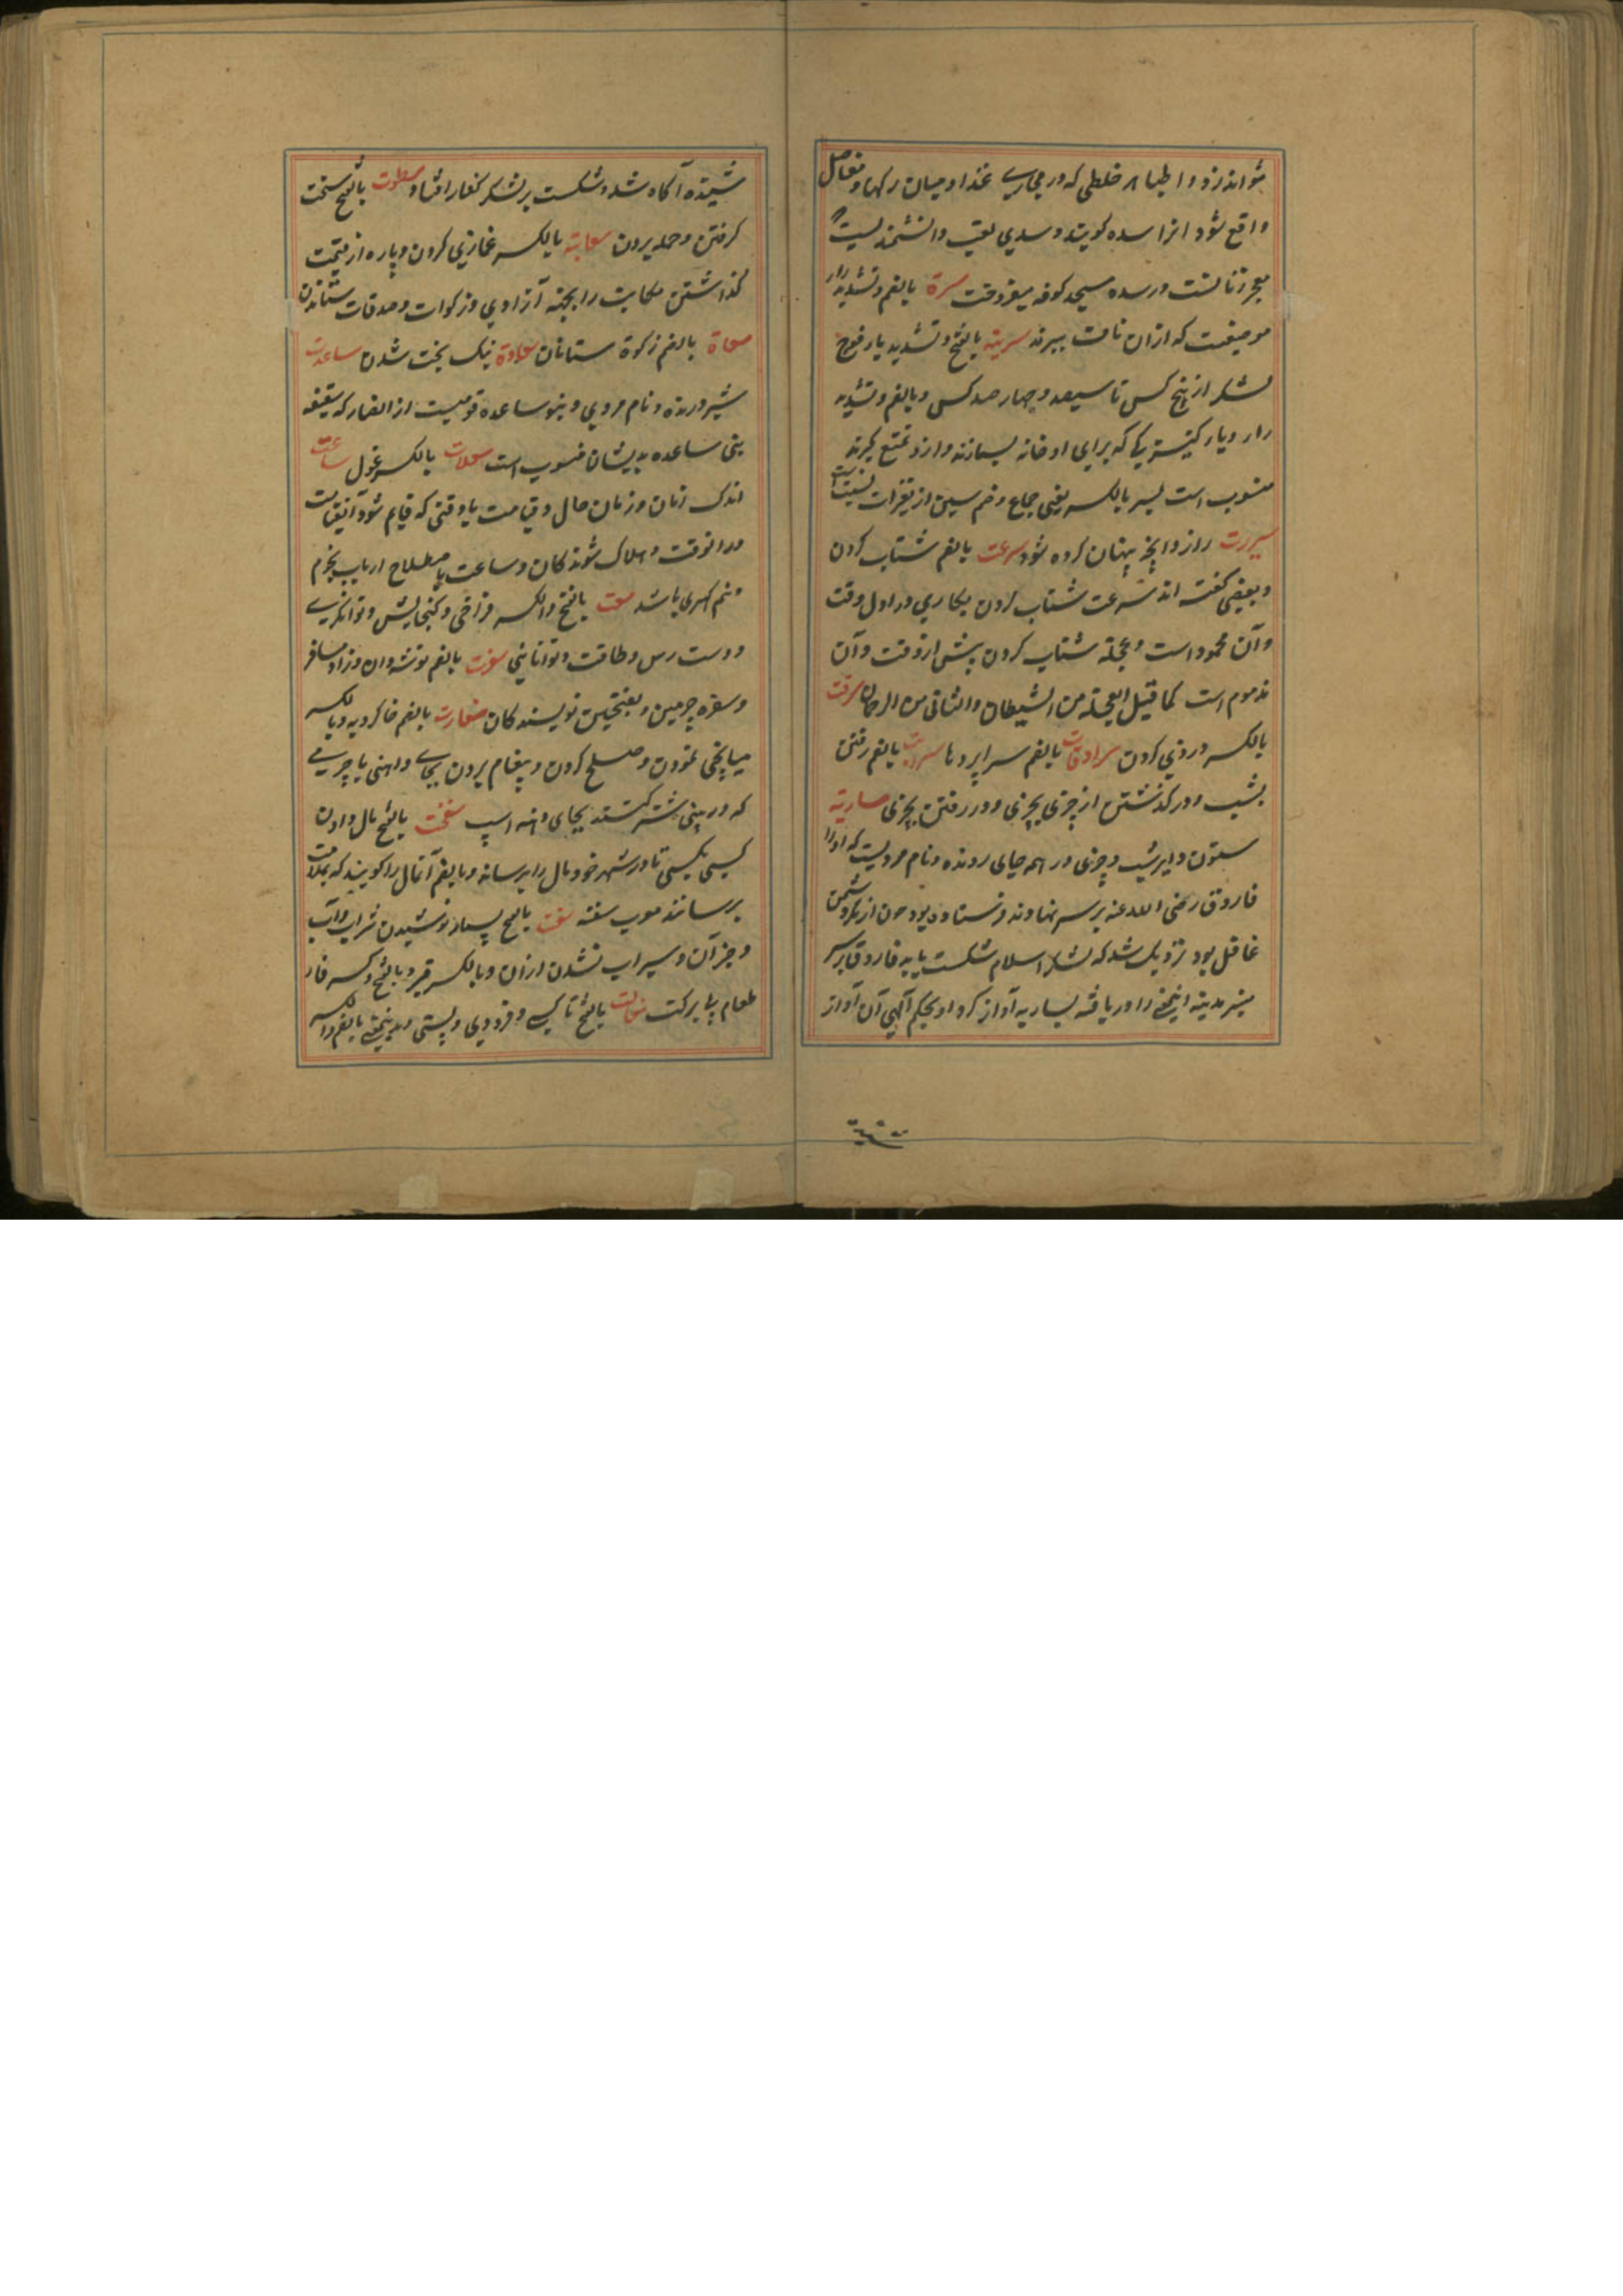 شواند زد و اطبا هر خلطی که در مجاری غذا و میان رگها و مفاصل
واقع شود انرا سده گویند و سدی لقب دانشمندیست
معجر زنا نشست در سده مسجد کوفه میفروخت سرة بالضم و تشدید را
موضعیست که ازان ناف ببرند سریه بالفتح و تشدید یا فوج
لشکر از پنج کس تا سیصد و چهار صد کس و بالضم و تشدید
را و یا کنیزکی که برای او خانه بسازند و ازو تمتع گیرند
منسوب است بسر بالکسر یعنی جماع و ضم سین از تغیرات نسبت است
سریرت راز و آنچه پنهان کرده شود سرعت بالضم شتاب کردن
و بعضی گفته اند سرعت شتاب کردن بکاری در اول وقت
و آن محمود است و عجله شتاب کردن پیش از وقت و آن
مذموم است کما قیل العجلة من الشیطان والتانی من الرحمان سرقت
بالکسر دزدی کردن سرادقات بالضم سراپردها سریت بالضم رفتن
بشب و در گذشتن از چیزی بچیزی و در رفتن بچیزی ساریه
ستون و ابر شب و چیزی در همه جای رونده و نام مردیست که او را
فاروق رضی الله عنه بر سر نهاوند فرستاده بود چون از مکر دشمن
غافل بود نزدیک شد که لشکر اسلام شکست یابد فاروق بر سر
منبر مدینه اینمعنی را دریافته بساریه آواز کرد او بحکم الهی آن آواز
شنیده آگاه شد و شکست بر لشکر کفار افتاد سطوت بالفتح سخت
گرفتن و حمله بردن سعایة بالکسر غمازی کردن و پاره از قیمت
گذاشتن مکاتبت را بجهة آزادی و زکوات و صدقات ستاندن
سعاة بالضم زکوة ستانان سعادة نیک بخت شدن ساعدت
شیر درنده و نام مردی و بنو ساعده قومیست از انصار که سقیفه
بنی ساعده بدیشان منسوب است سعلات بالکسر غول ساعت
اندک زمان و زمان حال و قیامت یا وقتی که قایم شود آن قیامت
در انوقت و هلاک شوندگان و ساعت باصطلاح ارباب نجوم
و نیم گهری باشد سعت بالفتح والکسر فراخی و گنجایش و توانگری
و دست رس و طاقت و توانایی سفرت بالضم توشه دان و زاد مسافر
و سفره چرمین و بفتحتین نویسندگان سفارت بالضم خاکروبه و بالکسر
میانجی نمودن و صلح کردن و پیغام بردن بجای و اهنی یا چرمی
که در بینی شتر کنند بجای دهنه اسپ سفتجت بالفتح مال دادن
کسی بکسی تا در شهر خود مال را برساند و بالضم آنمال را گویند که بسلامت
برسانند معرب سفته سفت بالفتح بسیار نوشیدن شراب و آب
و جز آن و سیراب نشدن ازان و بالکسر قیر و بالفتح و کسر فا
طعام بی برکت سفالت بالفتح ناکسی و فرودی و پستی و بدینمعنی بالضم و الکسر